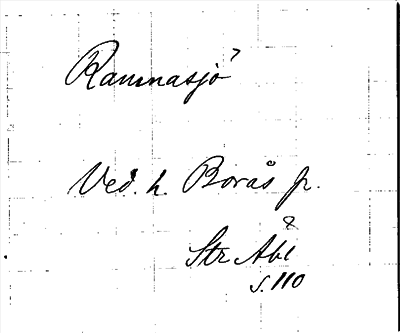 Rammasjö
Ved. h. Borås fr.
8
Str Abl
s. 110